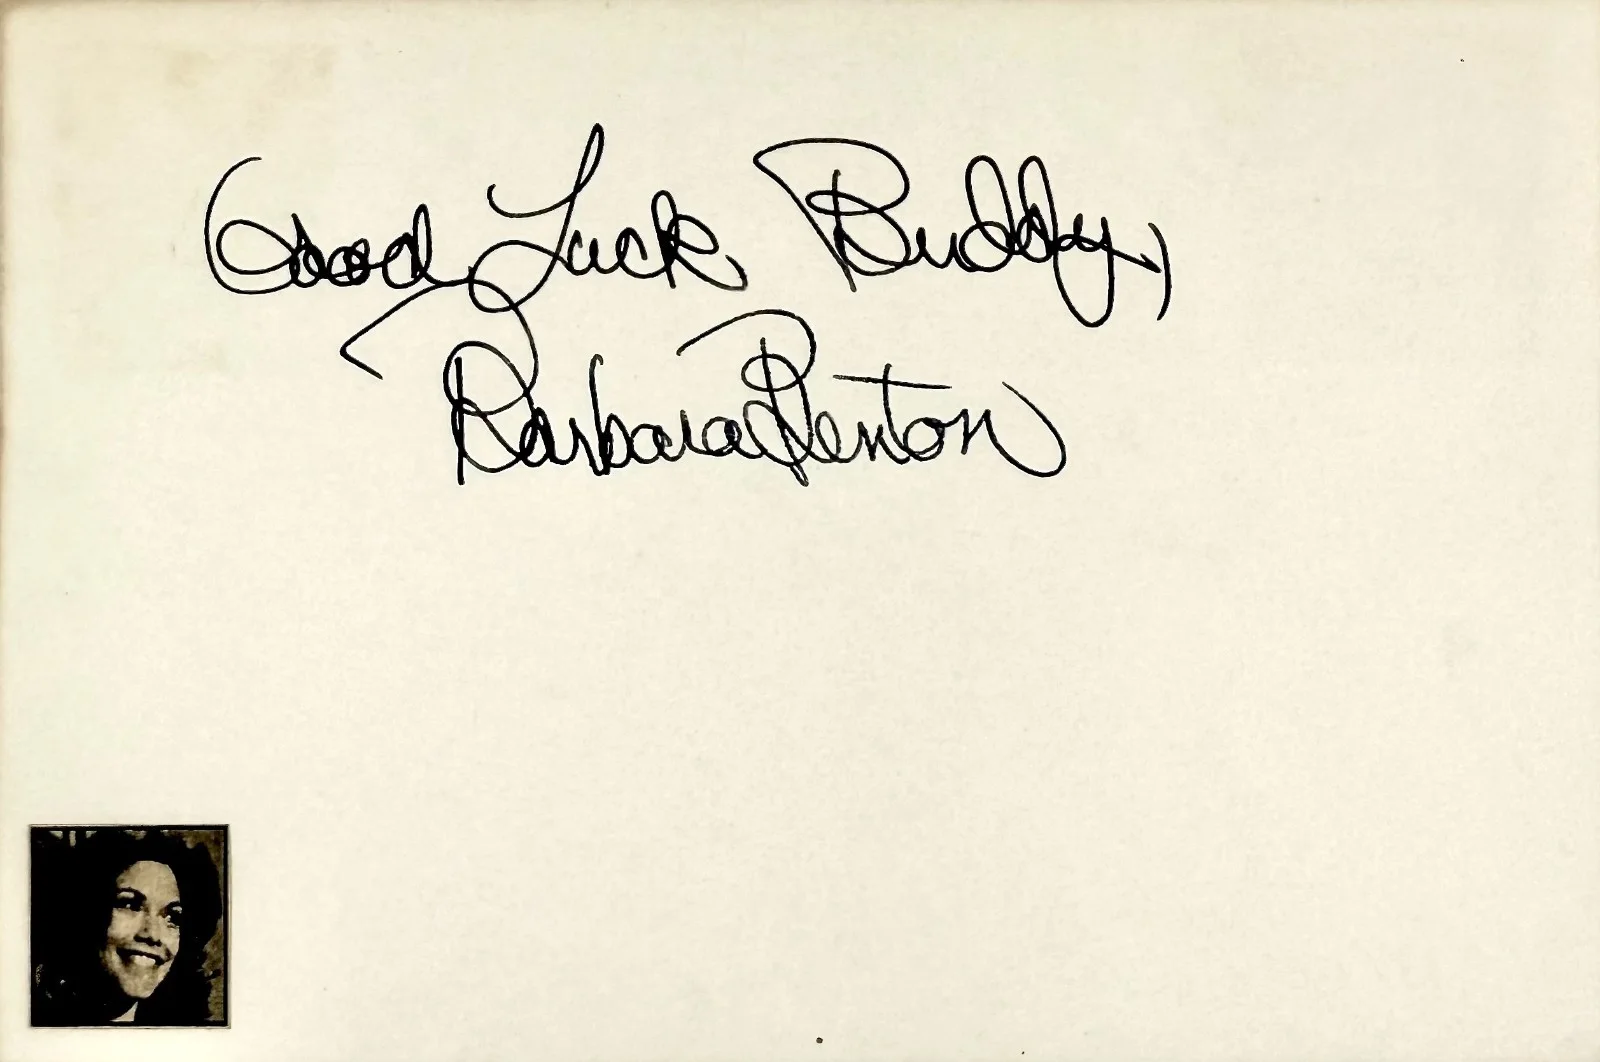 Good Luck Buddy,
Barbara Benton